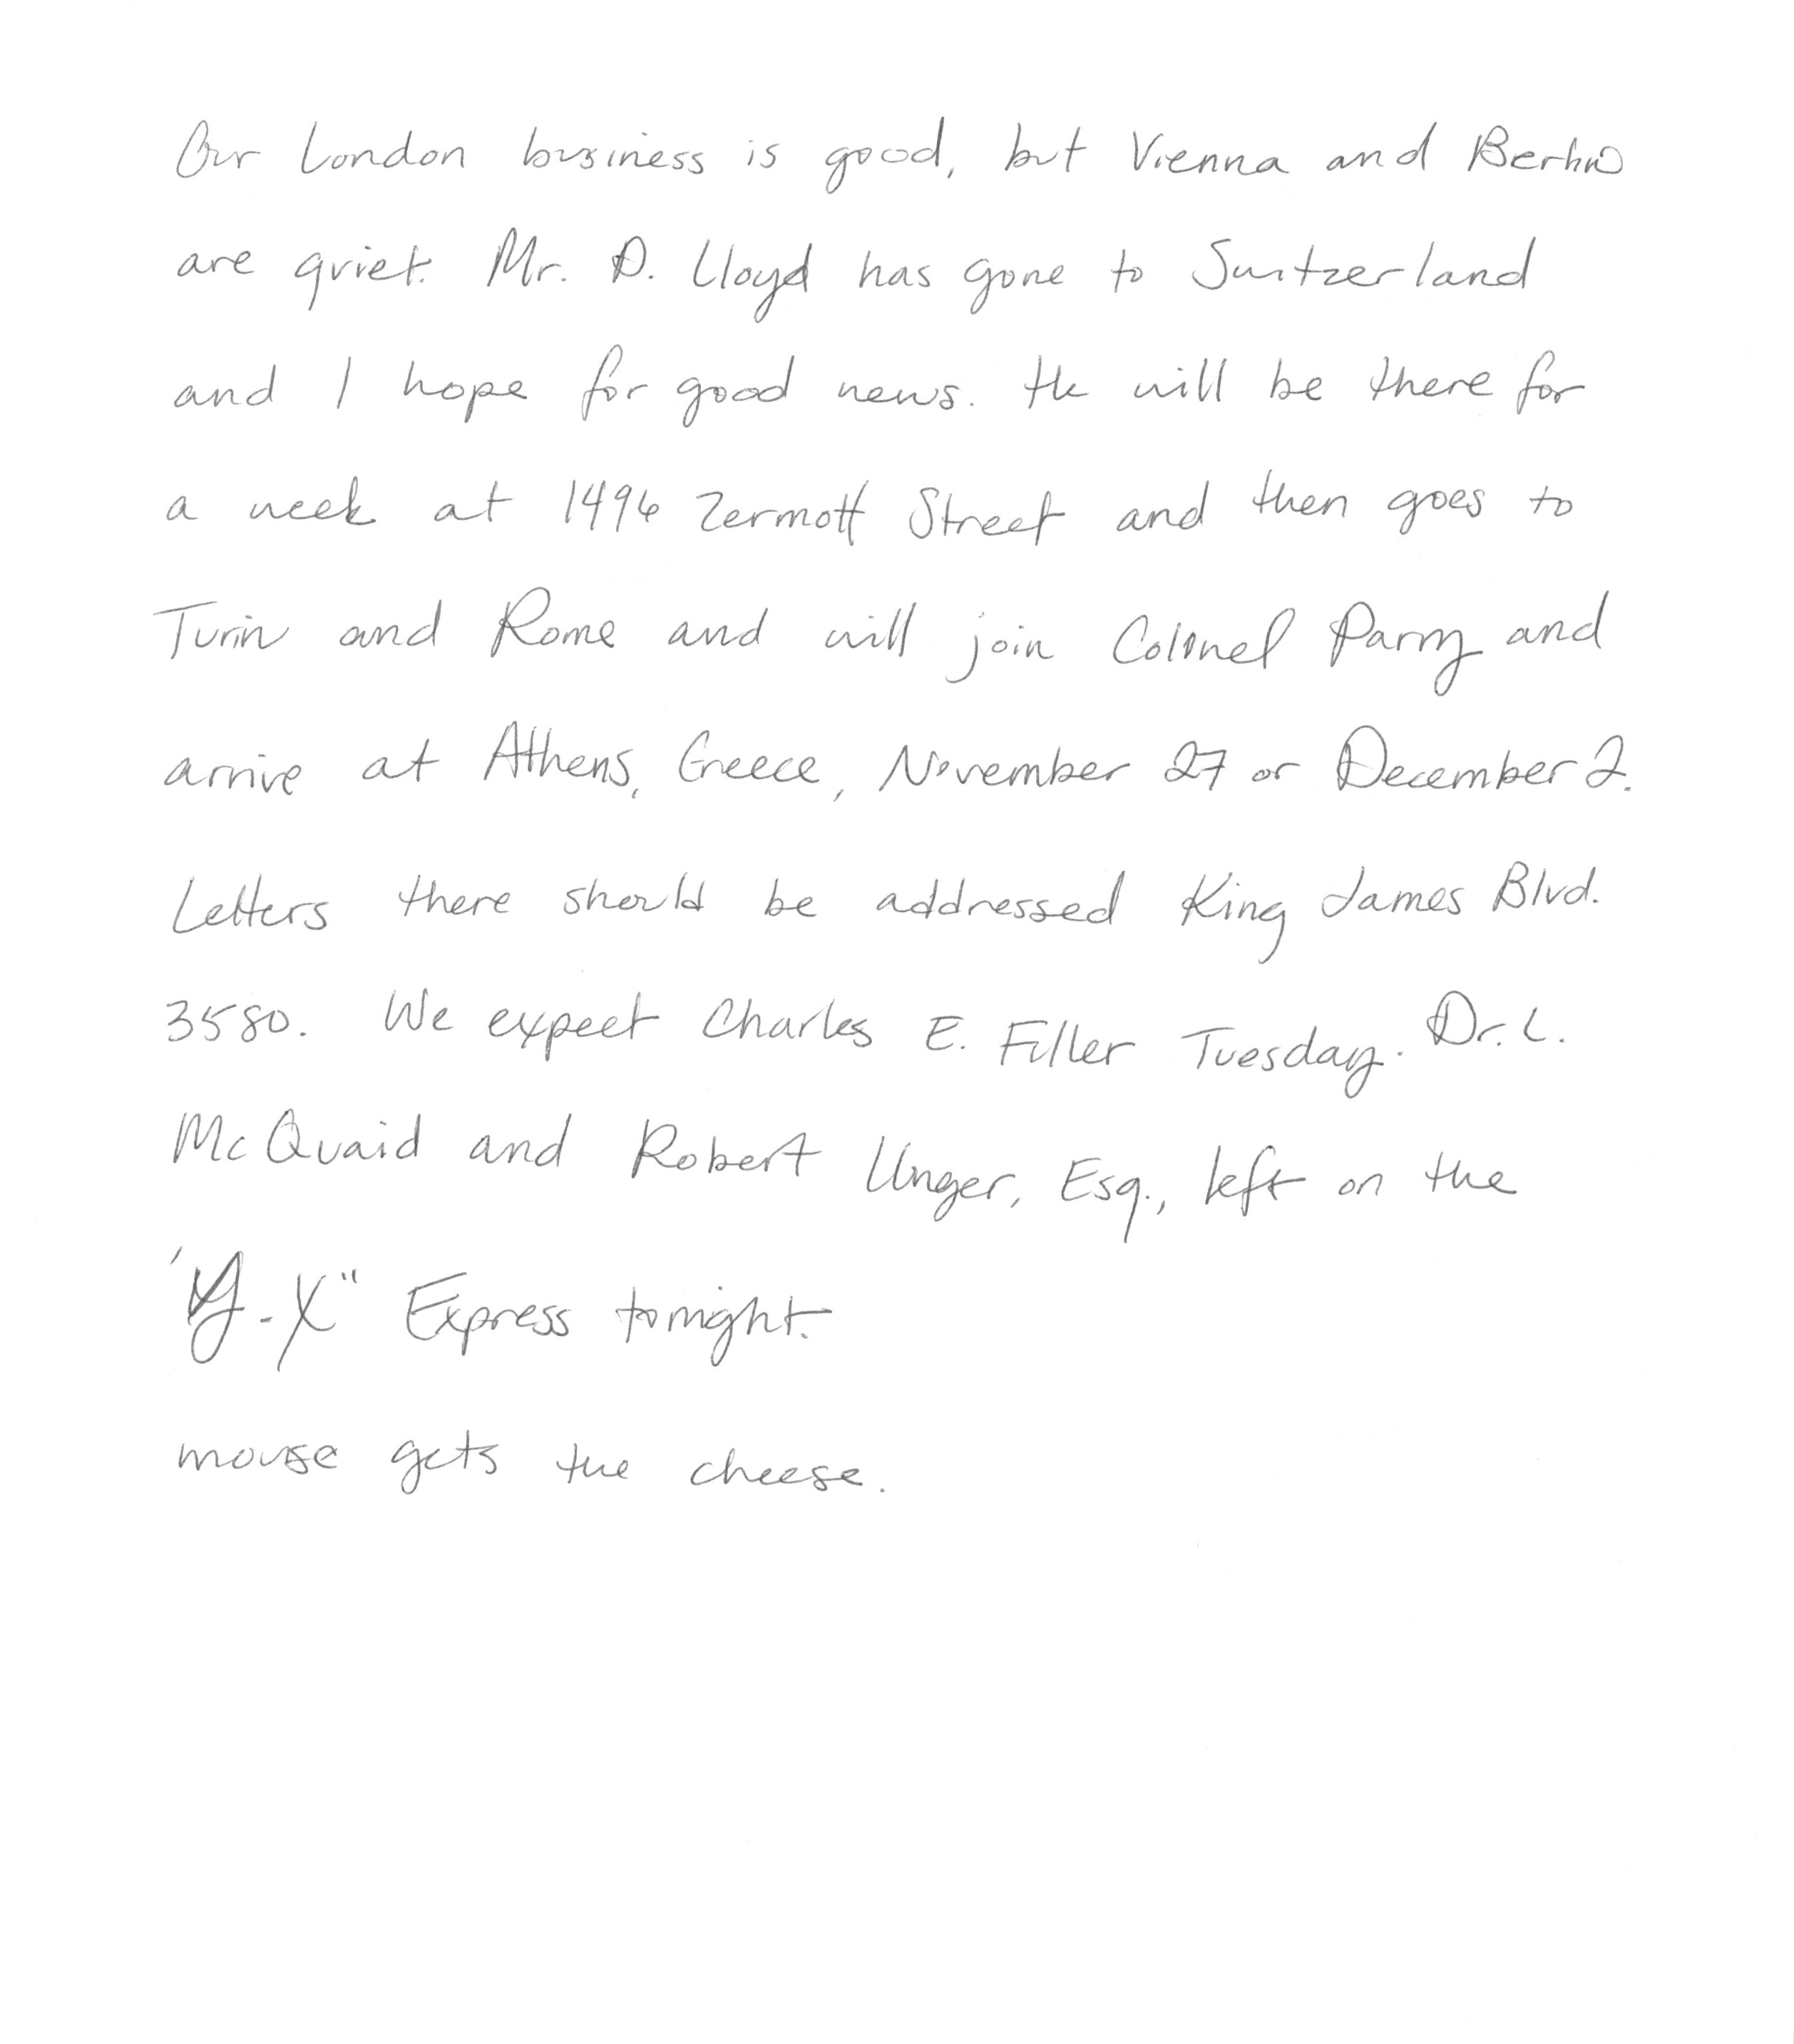 Our London business is good, but Vienna and Berlin
are quiet. Mr. D. Lloyd has gone to Switzerland
and I hope for good news. He will be there for
a week at 1496 Zermott Street and then goes to
Turin and Rome and will join Colonel Parry and
arrive at Athens, Greece, November 27 or December 2.
Letters there should be addressed King James Blvd.
3580. We expect Charles E. Filler Tuesday. Dr. L.
McQuaid and Robert Unger, Esq., left on the
"Y-X" Express tonight.
mouse gets the cheese.